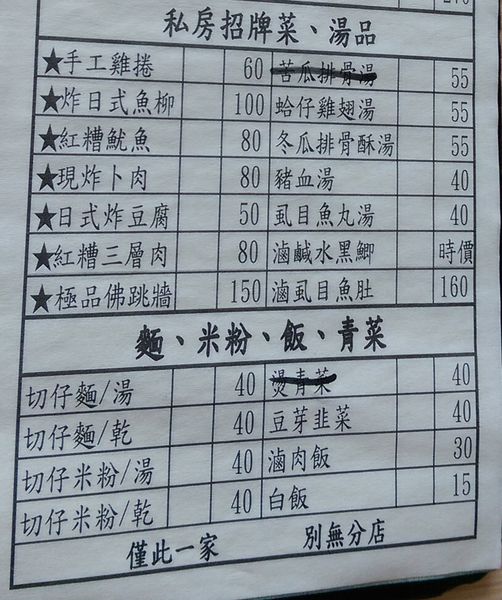 私房招牌菜、湯品
★手工雞捲 60 苦瓜排骨湯 55
★炸日式魚柳 100 蛤仔雞翅湯 55
★紅糟魷魚 80 冬瓜排骨酥湯 55
★現炸卜肉 80 豬血湯 40
★日式炸豆腐 50 虱目魚丸湯 40
★紅糟三層肉 80 滷鹹水黑鯽 時價
★極品佛跳牆 150 滷虱目魚肚 160
麵、米粉、飯、青菜
切仔麵/湯 40 燙青菜 40
切仔麵/乾 40 豆芽韭菜 40
切仔米粉/湯 40 滷肉飯 30
切仔米粉/乾 40 白飯 15
僅此一家 別無分店